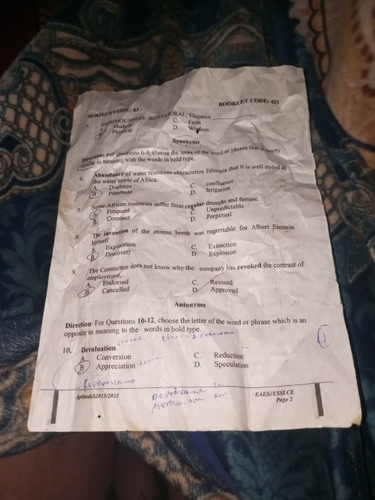 SUBJECT CODE: 03 BOOKLET CODE: 421
Elegance
A. Modest C. Faith
B. Physical D.
Synonyms
Direction: For Questions 6-9, choose the letter of the word or phrase that is
similar in meaning with the words in bold type.
6. Abundance of water resources characterize Ethiopia that it is well styled as
the water tower of Africa.
A. C. confluence
B. Plenitude D. Irrigation
7. Some African countries suffer from regular drought and famine.
A. Frequent C. Unpredictable
B. Constant D. Perpetual
8. The invention of the atomic bomb was regrettable for Albert Einstein
himself.
A. C. Extinction
B. Discovery D. Explosion
9. The Committee does not know why the company has revoked the contract of
employment.
A. Endorsed C. Revised
B. Cancelled D. Approved
Antonyms
Direction: For Questions 10-12, choose the letter of the word or phrase which is an
opposite in meaning to the words in bold type.
10. Devaluation
A. Conversion C. Reduction
B. Appreciation D. Speculation
Aptitude/2015/2023 EAES/ESSLCE
Page 2